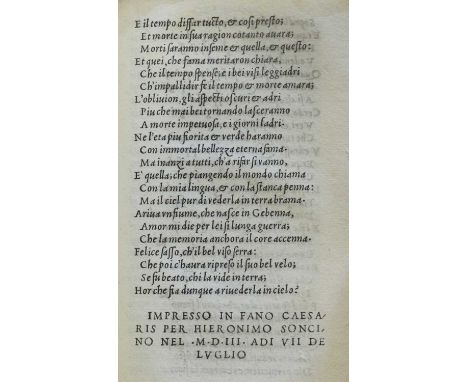 E il tempo disfar tutto, & cosi presto;
Et morte in sua ragion cotanto auara;
Morti saranno inseme & quella, & questo:
Et quei, che fama meritaron chiara,
Che il tempo spense, e i bei visi leggiadri
Ch'impallidir fe il tempo & morte amara;
L'obliuion, gli aspetti oscuri & adri
Piu che mai bei tornando lasceranno
A morte impetuosa, e i giorni ladri.
Ne l'eta piu fiorita & verde haranno
Con immortal bellezza eterna fama.
Ma inanzi a tutti, ch'a rifar si vanno,
E' quella, che piangendo il mondo chiama
Con la mia lingua, & con la stanca penna:
Ma il ciel pur di vederla in terra brama.
A riua vn fiume, che nasce in Gebenna,
Amor mi die per lei si lunga guerra;
Che la memoria anchora il core accenna.
Felice sasso, ch'il bel viso serra:
Che poi c'haura ripreso il suo bel velo;
Se fu beato, chi la vide in terra;
Hor che fia dunque a riuederla in cielo?
IMPRESSO IN FANO CAESA
RIS PER HIERONIMO SONCI
NO NEL .M.D.III. ADI VII DE
LVGLIO